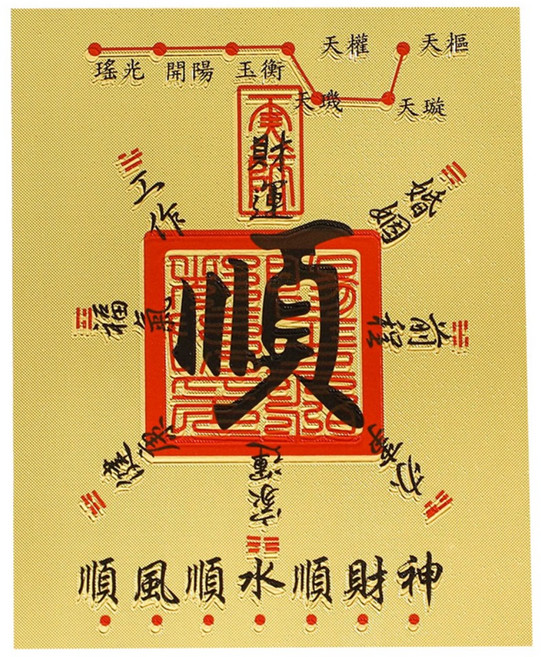 天權 天樞
瑤光 開陽 玉衡
天璣 天璇
財運
工作
婚姻
順
福氣
前程
健康
家運
順風順水順財神